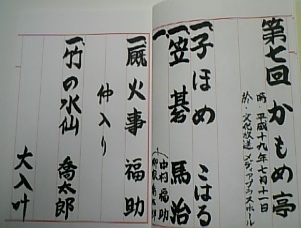 第七回 かもめ亭
平成十九年七月十一日
於・文化放送メディアプラスホール
一、子ほめ こはる
一、笠碁 馬治
一、
中村福助
一、厩火事 福助
仲入り
一、竹の水仙 喬太郎
大入叶